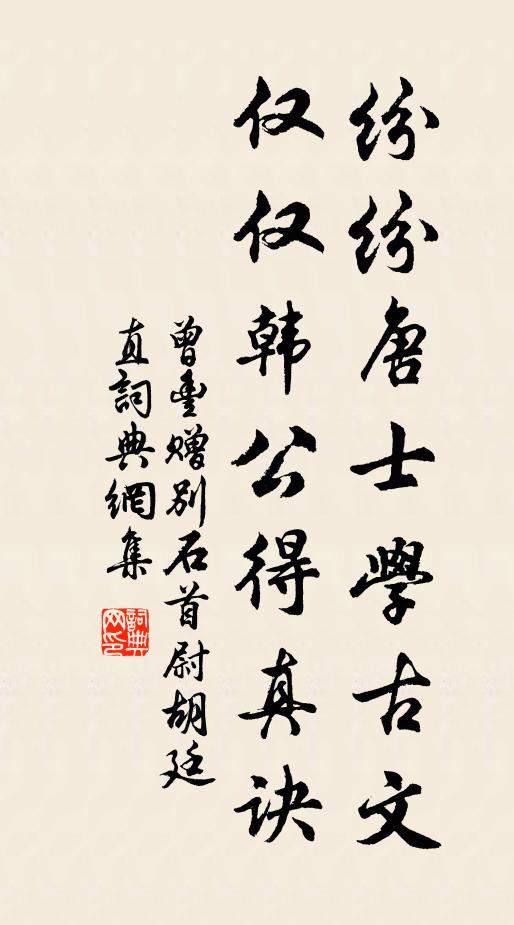 纷纷唐士學古文
仅仅韩公得真诀
曾豊赠别石首尉胡廷
直詞典網集
詞典
网印